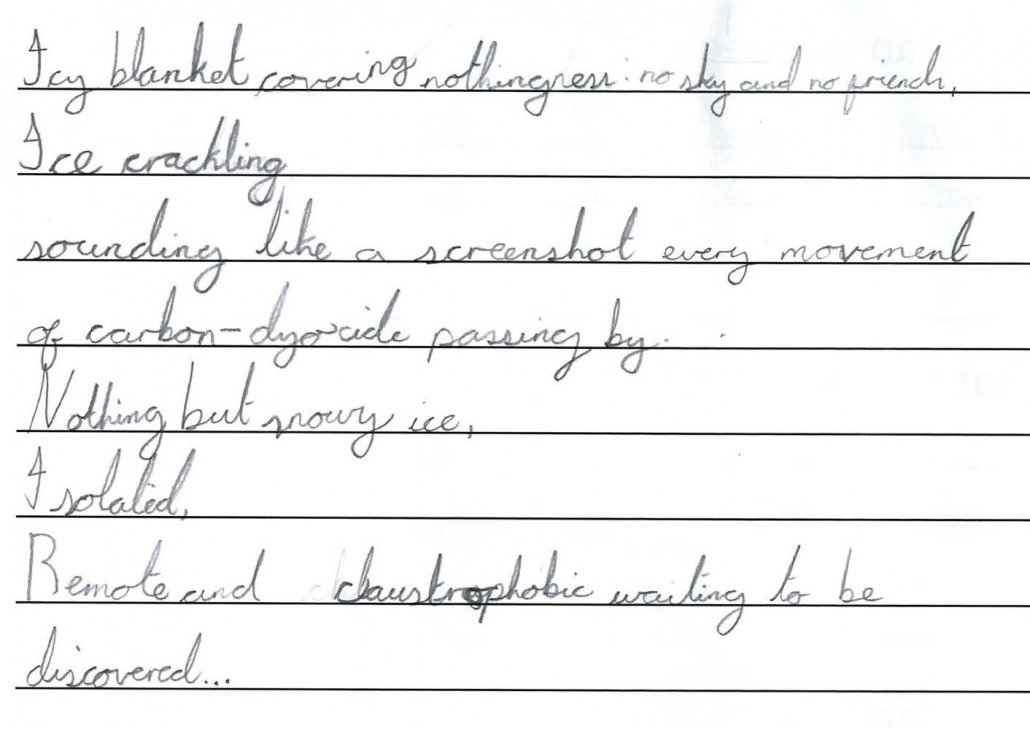 Icy blanket covering nothingness: no sky and no friends,
Ice crackling
sounding like a screenshot every movement
of carbon-dyoxide passing by.
Nothing but snowy ice,
Isolated,
Remote and claustrophobic waiting to be
discovered...